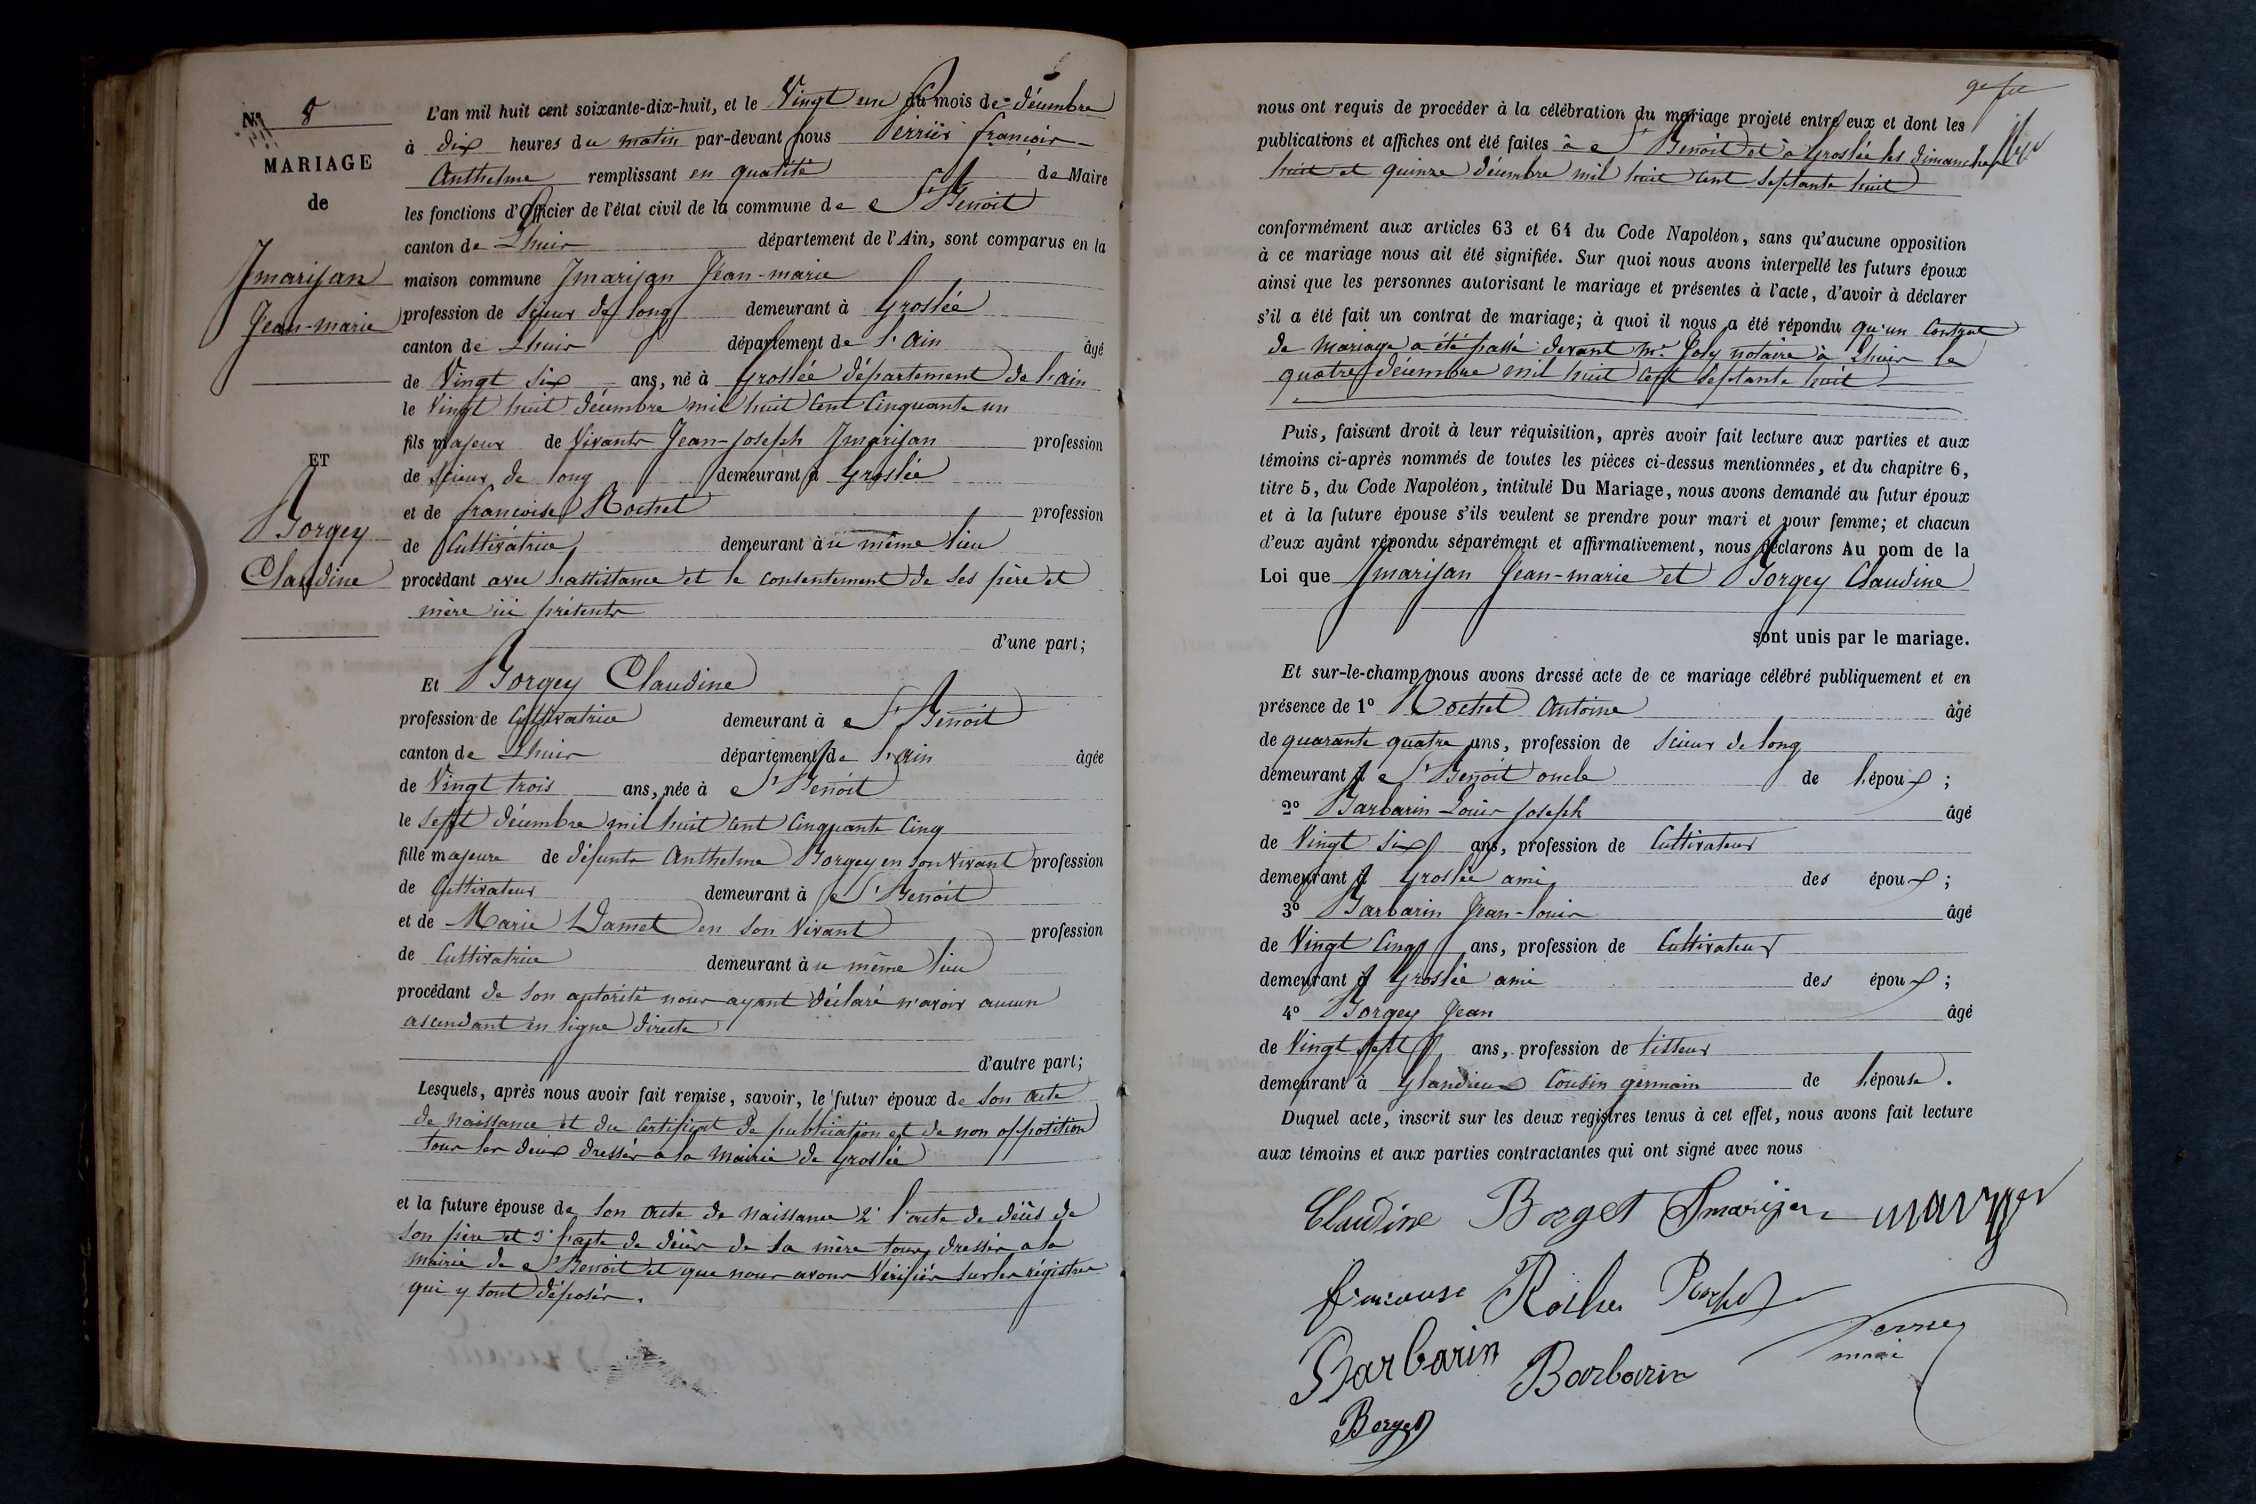 N° 8
MARIAGE
de
Jmarijan
Jean-marie
ET
Borgey
Claudine
L'an mil huit cent soixante-dix-huit, et le Vingt un du mois de décembre
à dix heures du matin par-devant nous Perrier françois
Anthelme remplissant en qualité de Maire
les fonctions d'Officier de l'état civil de la commune de St Benoit
canton de Lhuis département de l'Ain, sont comparus en la
maison commune Jmarijan Jean-marie
profession de scieur de long demeurant à Groslée
canton de Lhuis département de l'ain âgé
de Vingt six ans, né à Groslée département de l'ain
le Vingt huit décembre mil huit cent cinquante un
fils majeur de Vivants Jean-joseph Jmarijan profession
de scieur de long demeurant à Groslée
et de francoise Rochet profession
de Cultivatrice demeurant à ce même lieu
procédant avec l'assistance et le consentement de ses père et
mère ici présents
d'une part;
Et Borgey Claudine
profession de Cultivatrice demeurant à St Benoit
canton de Lhuis département de l'ain âgée
de Vingt trois ans, née à St Benoit
le sept décembre mil huit cent cinquante cinq
fille majeure de défunts Anthelme Borgey en son vivant profession
de Cultivateur demeurant à St Benoit
et de Marie Damet en son vivant profession
de Cultivatrice demeurant à ce même lieu
procédant de son autorité nous ayant déclaré n'avoir aucun
ascendant en ligne directe
d'autre part;
Lesquels, après nous avoir fait remise, savoir, le futur époux de son acte
de naissance et du certificat de publication et de non opposition
tous les deux dressés à la mairie de Groslée
et la future épouse de son acte de naissance 2° l'acte de décès de
son père et 3° l'acte de décès de sa mère tous dressés a la
mairie de St Benoit et que nous avons Vérifiés sur les régistres
qui y sont déposés.
nous ont requis de procéder à la célébration du mariage projeté entre eux et dont les
publications et affiches ont été faites à St Benoit et à Groslée les dimanches
huit et quinze décembre mil huit cent septante huit
conformément aux articles 63 et 64 du Code Napoléon, sans qu'aucune opposition
à ce mariage nous ait été signifiée. Sur quoi nous avons interpellé les futurs époux
ainsi que les personnes autorisant le mariage et présentes à l'acte, d'avoir à déclarer
s'il a été fait un contrat de mariage; à quoi il nous a été répondu qu'un Contrat
de mariage a été passé devant me. Joly notaire à Lhuis le
quatre décembre mil huit cent septante huit
Puis, faisant droit à leur réquisition, après avoir fait lecture aux parties et aux
témoins ci-après nommés de toutes les pièces ci-dessus mentionnées, et du chapitre 6,
titre 5, du Code Napoléon, intitulé Du Mariage, nous avons demandé au futur époux
et à la future épouse s'ils veulent se prendre pour mari et pour femme; et chacun
d'eux ayant répondu séparément et affirmativement, nous déclarons Au nom de la
Loi que Jmarijan Jean-marie et Borgey Claudine
sont unis par le mariage.
Et sur-le-champ nous avons dressé acte de ce mariage célébré publiquement et en
présence de 1° Rochet Antoine âgé
de quarante quatre ans, profession de scieur de long
demeurant à St Benoit oncle de l'époux;
2° Barbarin Louis joseph âgé
de Vingt six ans, profession de Cultivateur
demeurant à Groslée ami des époux;
3° Barbarin Jean-Louis âgé
de Vingt Cinq ans, profession de Cultivateur
demeurant à Groslée ami des époux;
4° Borgey Jean âgé
de Vingt sept ans, profession de tisseur
demeurant à Glandieux Cousin germain de l'épouse.
Duquel acte, inscrit sur les deux registres tenus à cet effet, nous avons fait lecture
aux témoins et aux parties contractantes qui ont signé avec nous
Claudine Borget Jmarijan
Rochet
Barbarin Barbarin